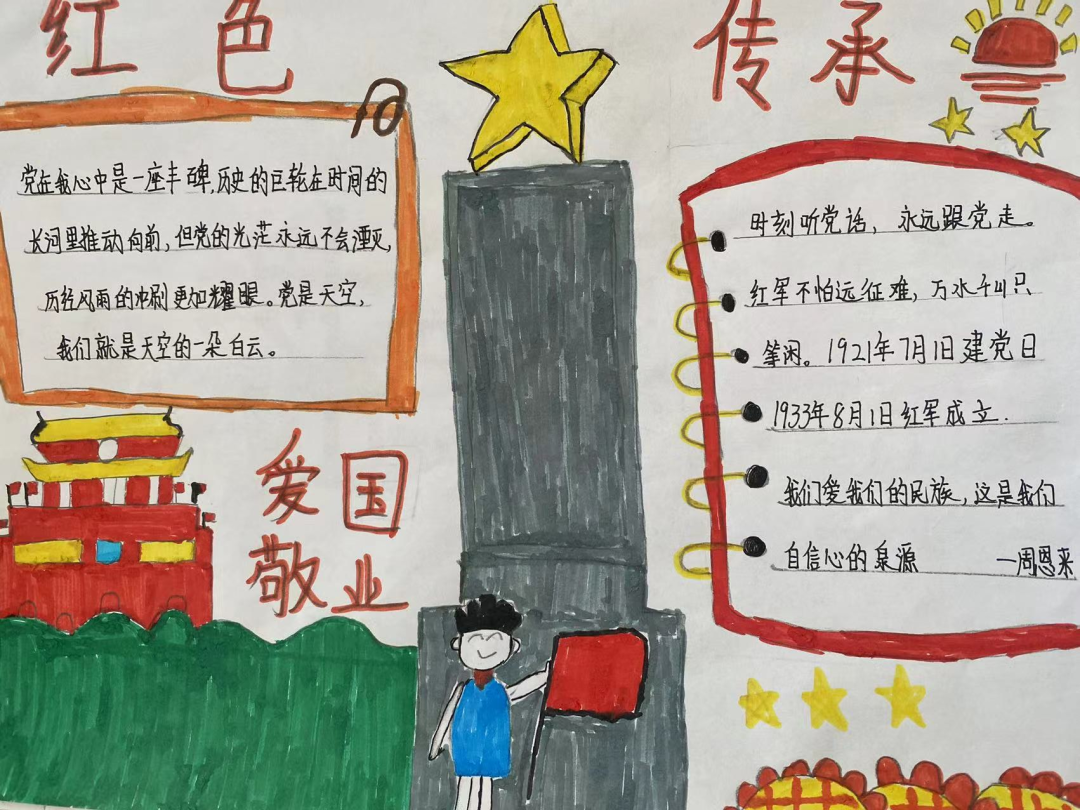 红色
传承
党在我心中是一座丰碑,历史的巨轮在时间的
长河里推动向前,但党的光茫永远不会湮灭,
历经风雨的冲刷更加耀眼。党是天空,
我们就是天空的一朵白云。
爱国
敬业
时刻听党话,永远跟党走。
红军不怕远征难,万水千山只
等闲。1921年7月1日建党日
1933年8月1日红军成立.
我们爱我们的民族,这是我们
自信心的泉源 —周恩来